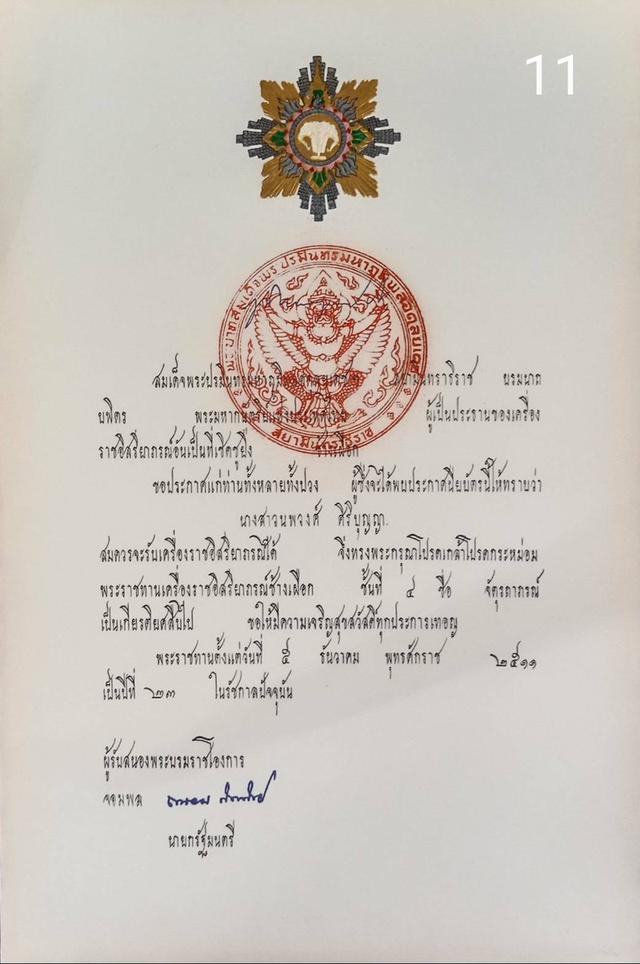 11
พระบาทสมเด็จพระปรมินทรมหาภูมิพลอดุลยเดช
สยามินทราธิราช
สมเด็จพระปรมินทรมหาภูมิพลอดุลยเดช สยามินทราธิราช บรมนาถ
บพิตร พระมหากษัตริย์แห่งประเทศไทย ผู้เป็นประธานของเครื่อง
ราชอิสริยาภรณ์อันเป็นที่เชิดชูยิ่ง ช้างเผือก
ขอประกาศแก่ท่านทั้งหลายทั้งปวง ผู้ซึ่งจะได้พบประกาศนียบัตรนี้ให้ทราบว่า
นางสาวนพวงศ์ ศิริบุญญา.
สมควรจะรับเครื่องราชอิสริยาภรณ์ได้ จึ่งทรงพระกรุณาโปรดเกล้าโปรดกระหม่อม
พระราชทานเครื่องราชอิสริยาภรณ์ช้างเผือก ชั้นที่ ๔ ชื่อ จัตุรถาภรณ์
เป็นเกียรติยศสืบไป ขอให้มีความเจริญสุขสวัสดิ์ทุกประการเทอญ
พระราชทานตั้งแต่วันที่ ๕ ธันวาคม พุทธศักราช ๒๕๑๑
เป็นปีที่ ๒๓ ในรัชกาลปัจจุบัน
ผู้รับสนองพระบรมราชโองการ
จอมพล
นายกรัฐมนตรี